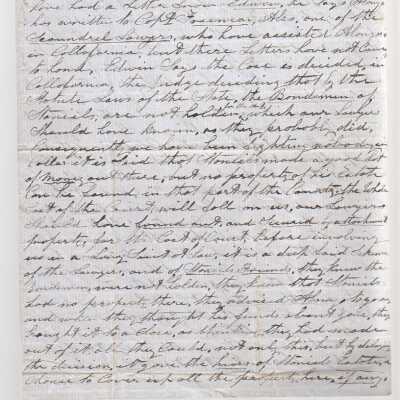 have had a Letter from Edwin, he says Alonzo
has written to Capt Freeman, Also, one of the
Scoundrel Lawyers, who have assisted Alonzo
in Californía, but there Letters have not Come
to hand, Edwin Says the Case is decided, in
California, the Judge deciding that by the
Laws of the State, the Bondsmen of
are not holden, which our Lawyers
Should have known, as they probably did,
Consequently we have been fighting nobody
it is Said that made a good deal
of Money out there, but no property of his Estate
Can be found in that part of the Country, the whole
Cost of the Court, will fall on us, our Lawyers
Should have found out, and Secured by attachment
property, for the Cost of Court, before involving
us in a Long Suit at Law, it is a deep laid Scheme
of the Lawyers, and of friends, they knew the
Bondsmen, were not holden, they knew that
had no property there, they advised
and when they thought his funds about gone, they
brought it to a close, as by this time they had made
out of it all they Could, not only this, but by delaying
the decision, it gave the heirs of Estate a
chance to Cover up all the property, here, if any,